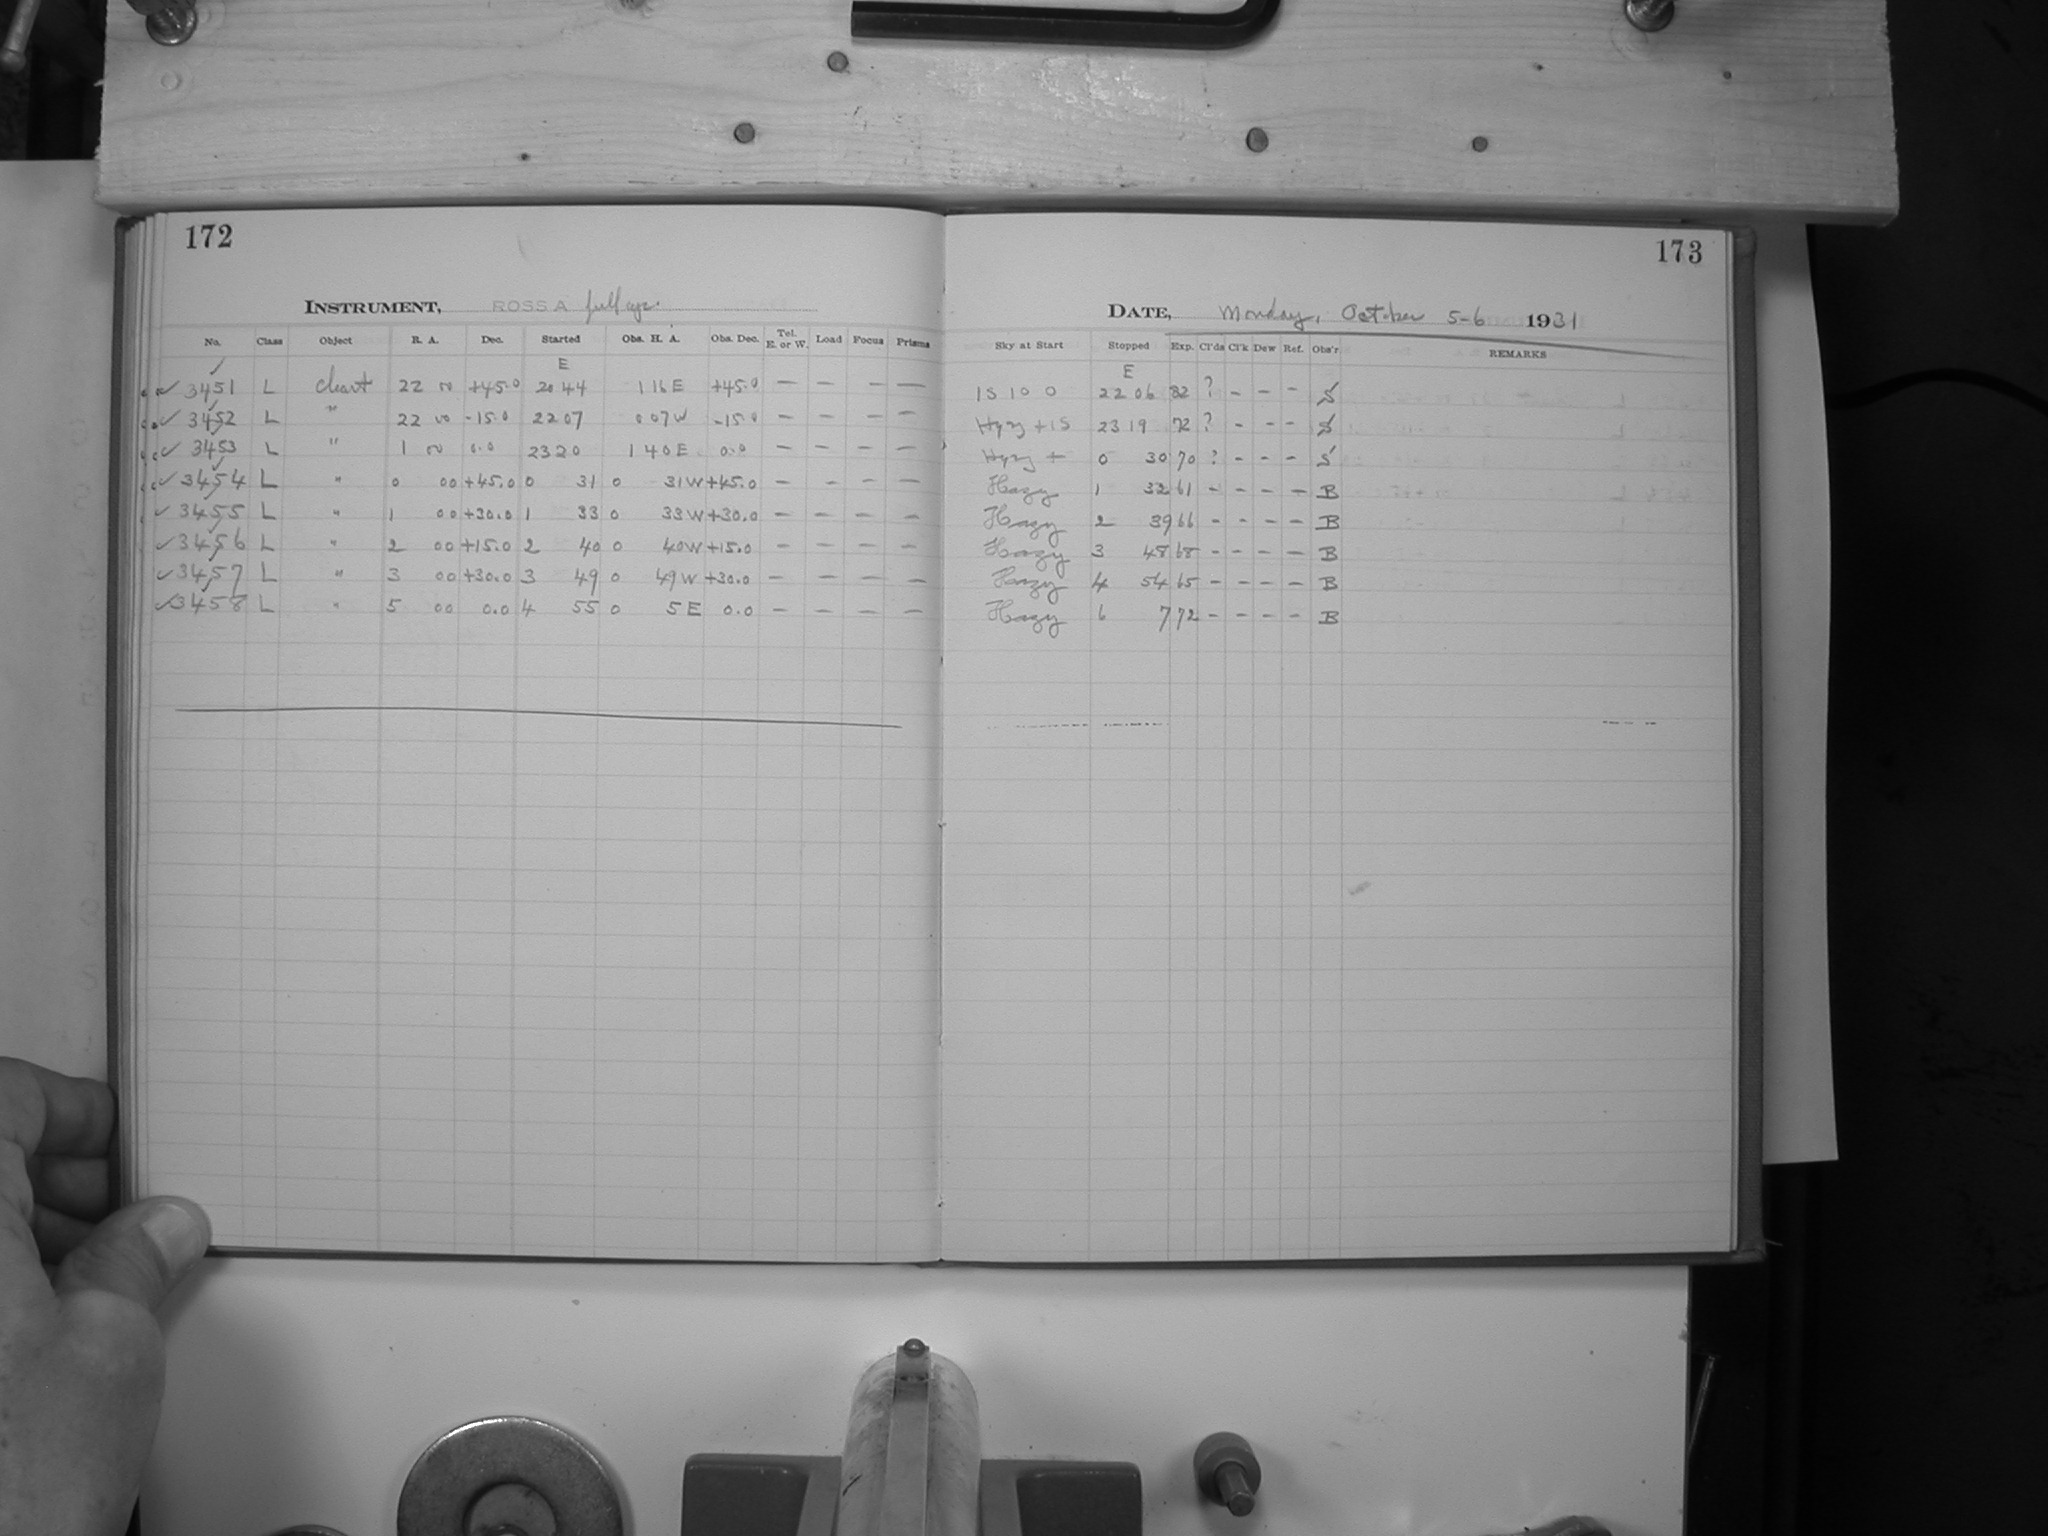 172
173
INSTRUMENT, ROSS A full ap.
DATE, Monday, October 5-6 1931
No. Class Object R. A. Dec. Started Obs. H. A. Obs. Dec. Tel. E. or W. Load Focus Prisms Sky at Start Stopped Exp. Cl'ds Cl'k Dew Ref. Obs'r REMARKS
E E
✓ 3451 L chart 22 00 +45.0 20 44 1 16 E +45.0 — — — — 1S 10 0 22 06 82 ? - - - S
✓ 3452 L " 22 00 -15.0 22 07 0 07 W -15.0 — — — — Hazy + 1S 23 19 72 ? - - - S
✓ 3453 L " 1 00 0.0 23 20 1 40 E 0.0 — — — — Hazy + 0 30 70 ? - - - S
✓ 3454 L " 0 00 +45.0 0 31 0 31 W +45.0 — — — — Hazy 1 32 61 - - - - B
✓ 3455 L " 1 00 +30.0 1 33 0 33 W +30.0 — — — — Hazy 2 39 66 - - - - B
✓ 3456 L " 2 00 +15.0 2 40 0 40 W +15.0 — — — — Hazy 3 48 68 - - - - B
✓ 3457 L " 3 00 +30.0 3 49 0 49 W +30.0 — — — — Hazy 4 54 65 - - - - B
✓ 3458 L " 5 00 0.0 4 55 0 5 E 0.0 — — — — Hazy 6 7 72 - - - - B